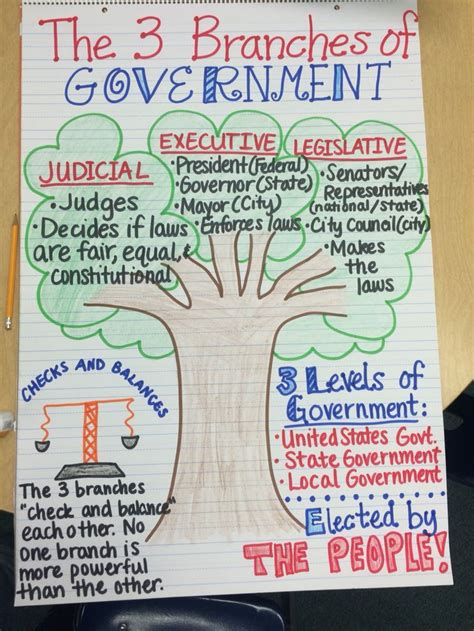 The 3 Branches of
GOVERNMENT
JUDICIAL
• Judges
• Decides if laws
are fair, equal, &
constitutional
EXECUTIVE
• President (Federal)
• Governor (State)
• Mayor (City)
• Enforces laws
LEGISLATIVE
• Senators/
Representatives
(national/state)
• City Council (city)
• Makes
the
laws
CHECKS AND BALANCES
The 3 branches
"check and balance"
each other. No
one branch is
more powerful
than the other.
3 Levels of
Government:
• United States Govt.
• State Government
• Local Government
Elected by
THE PEOPLE!